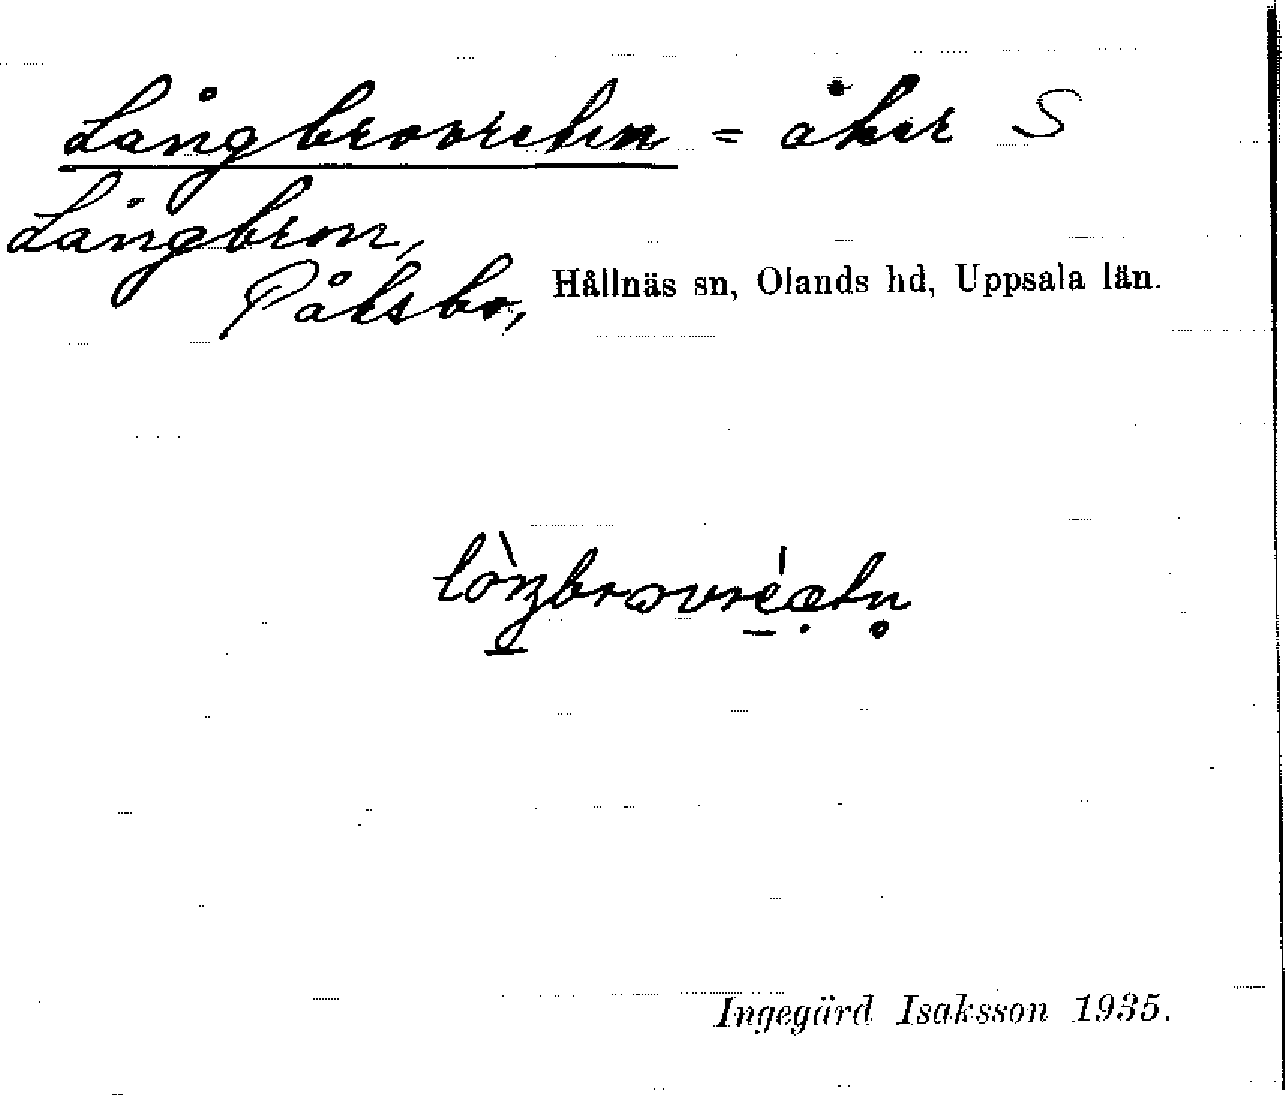 Långbrovreten = åker S
Långbron,
Påksbo, Hållnäs sn, Olands hd, Uppsala län.
Ingegärd Isaksson 1935.